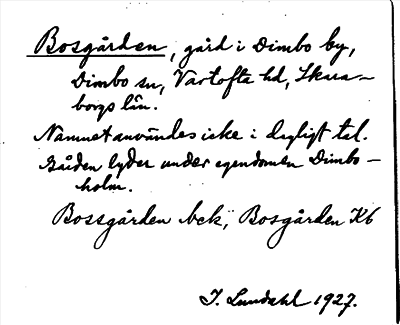 Bosgården, gård i Dimbo by,
Dimbo sn, Vartofta hd, Skara-
borgs län.
Namnet användes icke i dagligt tal.
Gården lyder under egendomen Dimbo-
holm.
Bossgården bek, Bosgården Kb
I. Lundahl 1927.